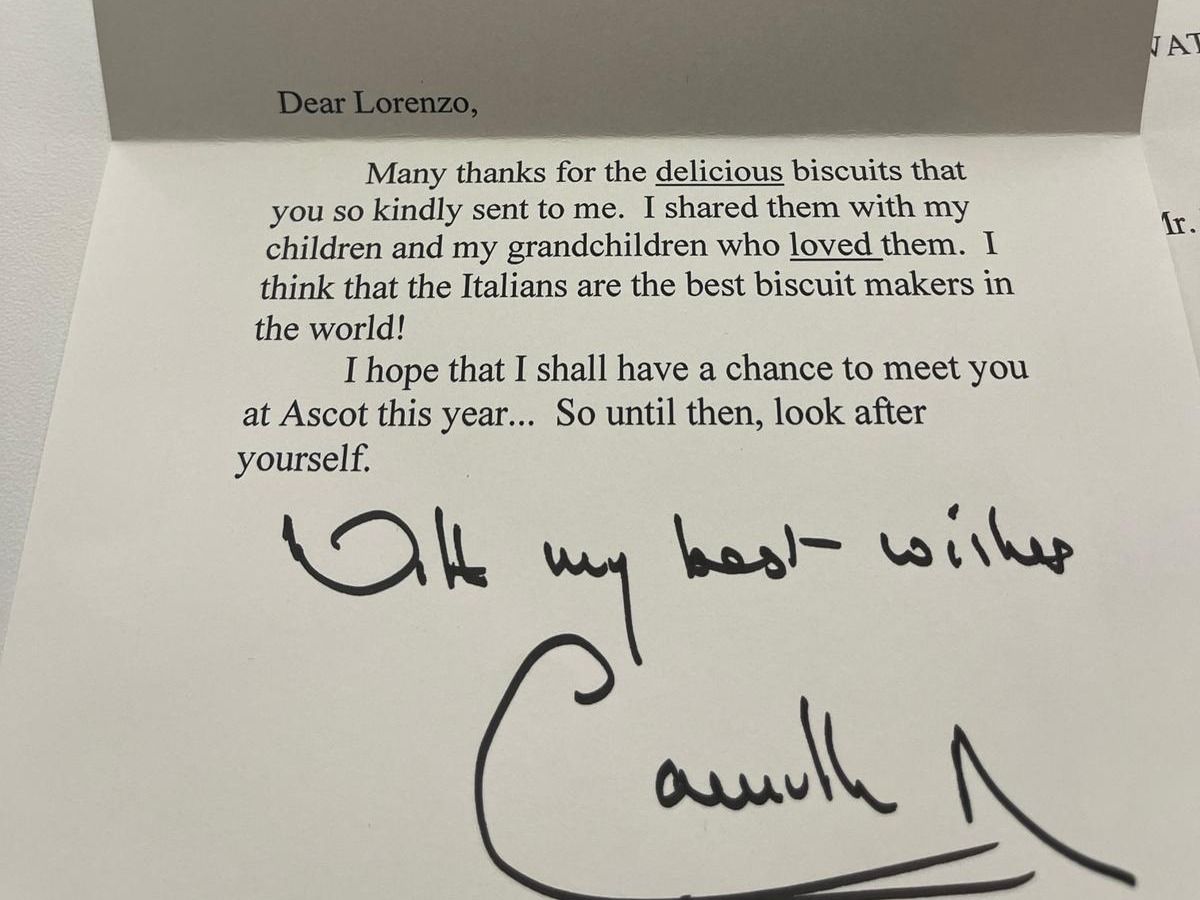 Dear Lorenzo,
Many thanks for the delicious biscuits that
you so kindly sent to me.  I shared them with my
children and my grandchildren who loved them.  I
think that the Italians are the best biscuit makers in
the world!
I hope that I shall have a chance to meet you
at Ascot this year...  So until then, look after
yourself.
With my best wishes
Camilla R